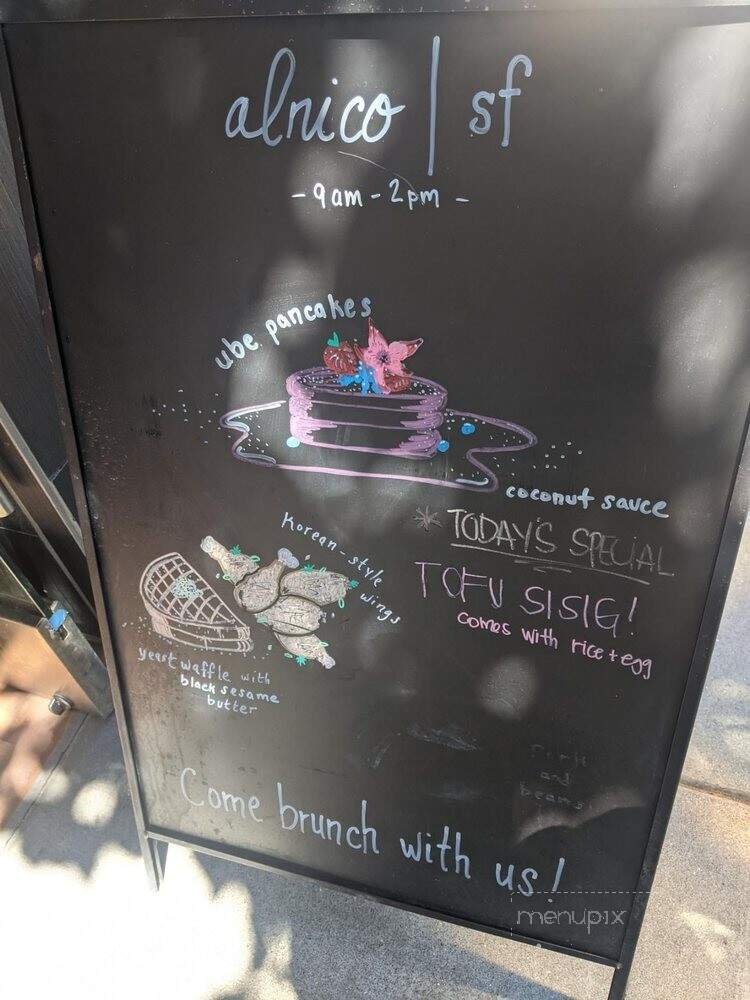 alnico | sf
- 9am - 2pm -
ube pancakes
coconut sauce
* TODAY'S SPECIAL
TOFU SISIG!
comes with rice + egg
Korean-style
wings
yeast waffle with
black sesame
butter
and
beans
Come brunch with us!
menupix